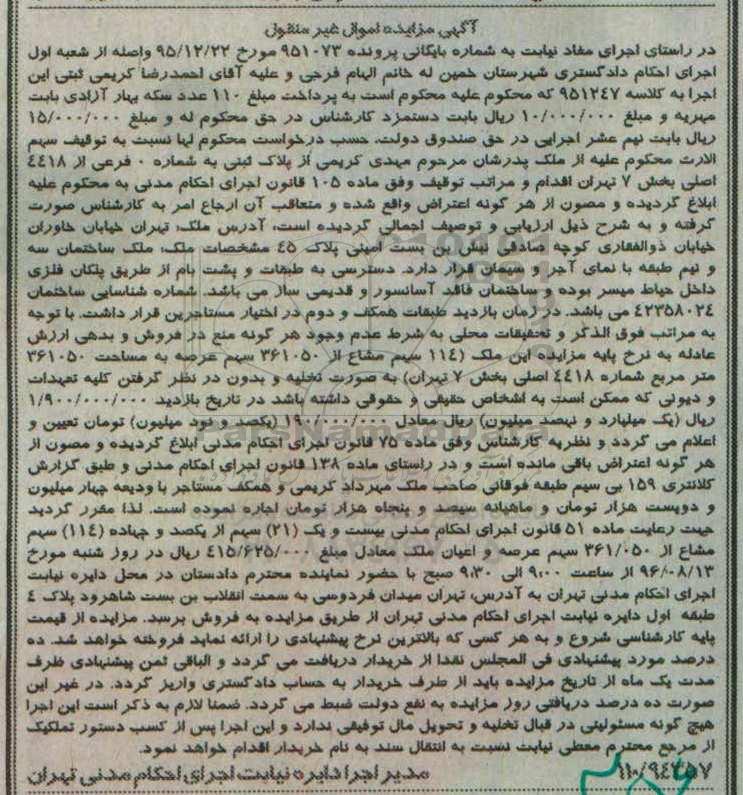 آگهی مزایده اموال غیر منقول
در راستای اجرای مفاد نیابت به شماره بایگانی پرونده ۹۵۱۰۷۳ مورخ ۹۵/۱۲/۲۲ واصله از شعبه اول
اجرای احکام دادگستری شهرستان خمین له خانم الهام فرجی و علیه آقای احمدرضا کریمی ثبتی این
اجرا به کلاسه ۹۵۱۲۴۷ که محکوم علیه محکوم است به پرداخت مبلغ ۱۱۰ عدد سکه بهار آزادی بابت
مهریه و مبلغ ۱۰/۰۰۰/۰۰۰ ریال بابت دستمزد کارشناس در حق محکوم له و مبلغ ۱۵/۰۰۰/۰۰۰
ریال بابت نیم عشر اجرایی در حق صندوق دولت، حسب درخواست محکوم لها نسبت به توقیف سهم
الارث محکوم علیه از ملک پدرشان مرحوم مهدی کریمی از پلاک ثبتی به شماره ۰ فرعی از ۴۴۱۸
اصلی بخش ۷ تهران اقدام و مراتب توقیف وفق ماده ۱۰۵ قانون اجرای احکام مدنی به محکوم علیه
ابلاغ گردیده و مصون از هر گونه اعتراض واقع شده و متعاقب آن ارجاع امر به کارشناس صورت
گرفته و به شرح ذیل ارزیابی و توصیف اجمالی گردیده است، آدرس ملک، تهران خیابان خاوران
خیابان ذوالفقاری کوچه صادقی نبش بن بست امینی پلاک ۴۵ مشخصات ملک، ملک ساختمان سه
و نیم طبقه با نمای آجر و سیمان قرار دارد. دسترسی به طبقات و پشت بام از طریق پلکان فلزی
داخل حیاط میسر بوده و ساختمان فاقد آسانسور و قدیمی ساز می باشد. شماره شناسایی ساختمان
۴۲۳۵۸۰۲۴ می باشد. در زمان بازدید طبقات همکف و دوم در اختیار مستاجرین قرار داشت. با توجه
به مراتب فوق الذکر و تحقیقات محلی به شرط عدم وجود هر گونه منع در فروش و بدهی ارزش
عادله به نرخ پایه مزایده این ملک (۱۱۴ سهم مشاع از ۳۶۱۰۵۰ سهم عرصه به مساحت ۳۶۱۰۵۰
متر مربع شماره ۴۴۱۸ اصلی بخش ۷ تهران) به صورت تخلیه و بدون در نظر گرفتن کلیه تعهدات
و دیونی که ممکن است به اشخاص حقیقی و حقوقی داشته باشد در تاریخ بازدید ۱/۹۰۰/۰۰۰/۰۰۰
ریال (یک میلیارد و نهصد میلیون) ریال معادل ۱۹۰/۰۰۰/۰۰۰ (یکصد و نود میلیون) تومان تعیین و
اعلام می گردد و نظریه کارشناس وفق ماده ۷۵ قانون اجرای احکام مدنی ابلاغ گردیده و مصون از
هر گونه اعتراض باقی مانده است و در راستای ماده ۱۳۸ قانون اجرای احکام مدنی و طبق گزارش
کلانتری ۱۵۹ بی سیم طبقه فوقانی صاحب ملک مهرداد کریمی و همکف مستاجر با ودیعه چهار میلیون
و دویست هزار تومان و ماهیانه سیصد و پنجاه هزار تومان اجاره نموده است. لذا مقرر گردید
جهت رعایت ماده ۵۱ قانون اجرای احکام مدنی بیست و یک (۲۱) سهم از یکصد و چهاده (۱۱۴) سهم
مشاع از ۳۶۱/۰۵۰ سهم عرصه و اعیان ملک معادل مبلغ ۴۱۵/۶۲۵/۰۰۰ ریال در روز شنبه مورخ
۹۶/۰۸/۱۳ از ساعت ۹:۰۰ الی ۹:۳۰ صبح با حضور نماینده محترم دادستان در محل دایره نیابت
اجرای احکام مدنی تهران به آدرس، تهران میدان فردوسی به سمت انقلاب بن بست شاهرود پلاک ۴
طبقه اول دایره نیابت اجرای احکام مدنی تهران از طریق مزایده به فروش برسد. مزایده از قیمت
پایه کارشناسی شروع و به هر کسی که بالاترین نرخ پیشنهادی را ارائه نماید فروخته خواهد شد. ده
درصد مورد پیشنهادی فی المجلس نقدا از خریدار دریافت می گردد و الباقی ثمن پیشنهادی ظرف
مدت یک ماه از تاریخ مزایده باید از طرف خریدار به حساب دادگستری واریز گردد. در غیر این
صورت ده درصد دریافتی روز مزایده به نفع دولت ضبط می گردد. ضمنا لازم به ذکر است این اجرا
هیچ گونه مسئولیتی در قبال تخلیه و تحویل مال توقیفی ندارد و این اجرا پس از کسب دستور تملکیک
از مرجع محترم معطی نیابت نسبت به انتقال سند به نام خریدار اقدام خواهد نمود.
۱۱۰/۹۴۳۵۷ مدیر اجرا دایره نیابت اجرای احکام مدنی تهران